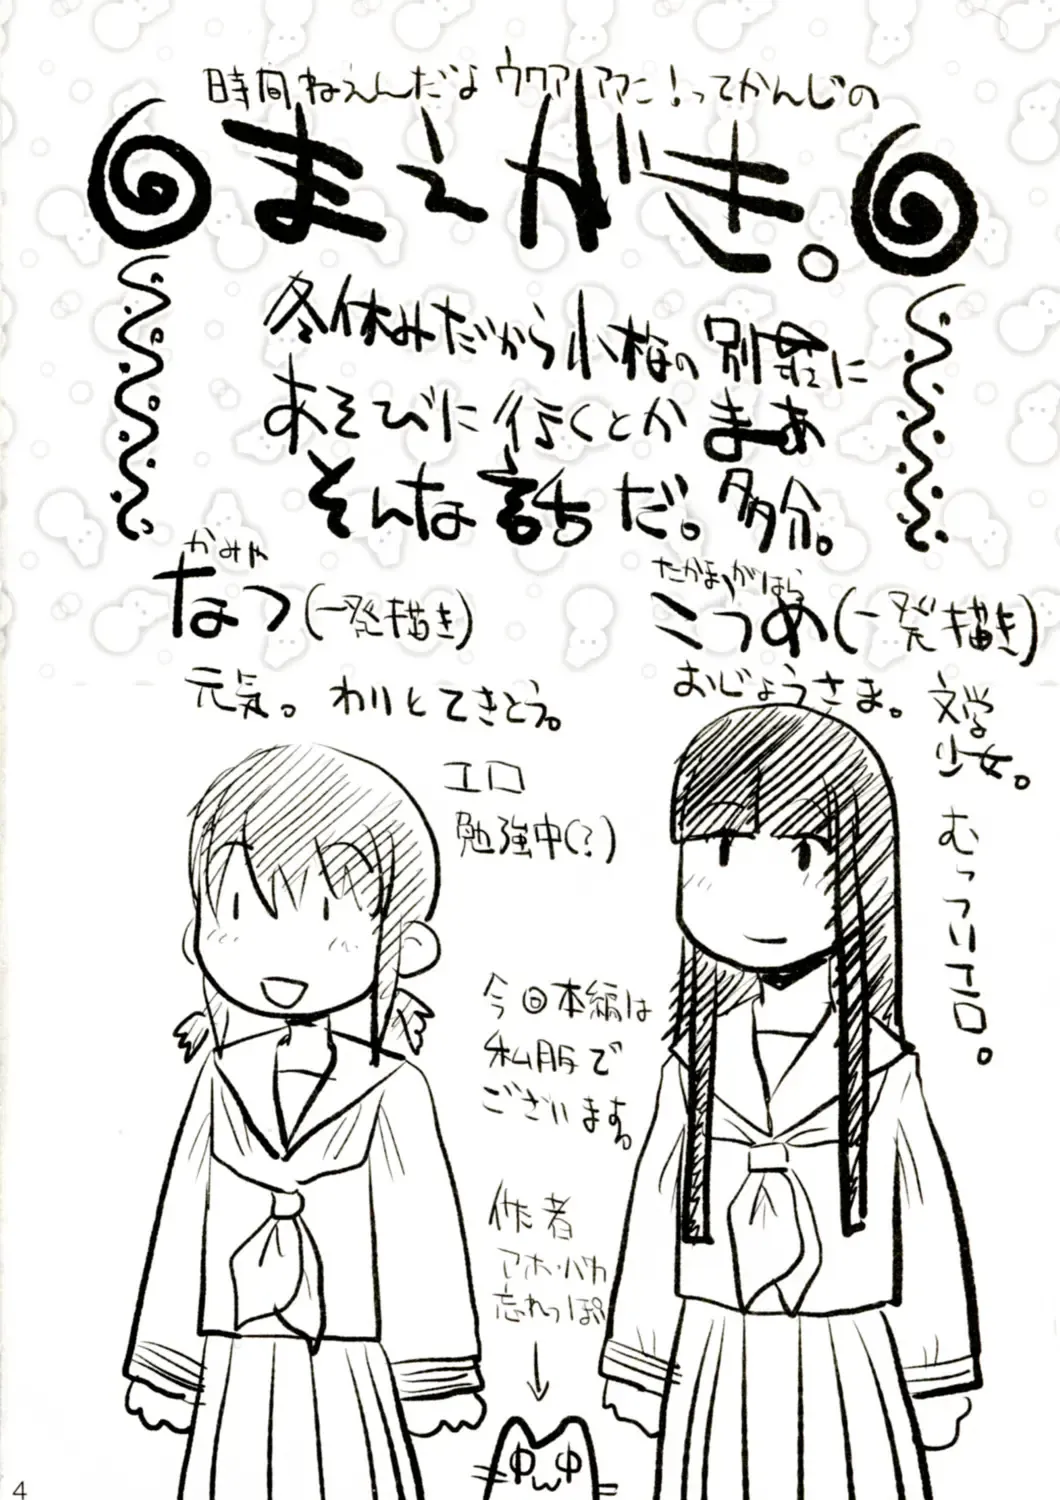 時間ねえんだよウワアアアン!ってかんじの
まえがき。
冬休みだから小梅の別荘に
あそびに行くとかまぁ
そんな話だ。多分。
かみや
なつ(一発描き)
元気。わりとてきとう。
エロ
勉強中(?)
たかまがはら
こうめ(一発描き)
おじょうさま。文学
少女。
むっつりエロ。
今回本編は
私服で
ございます。
作者
アホ・バカ
忘れっぽい
4